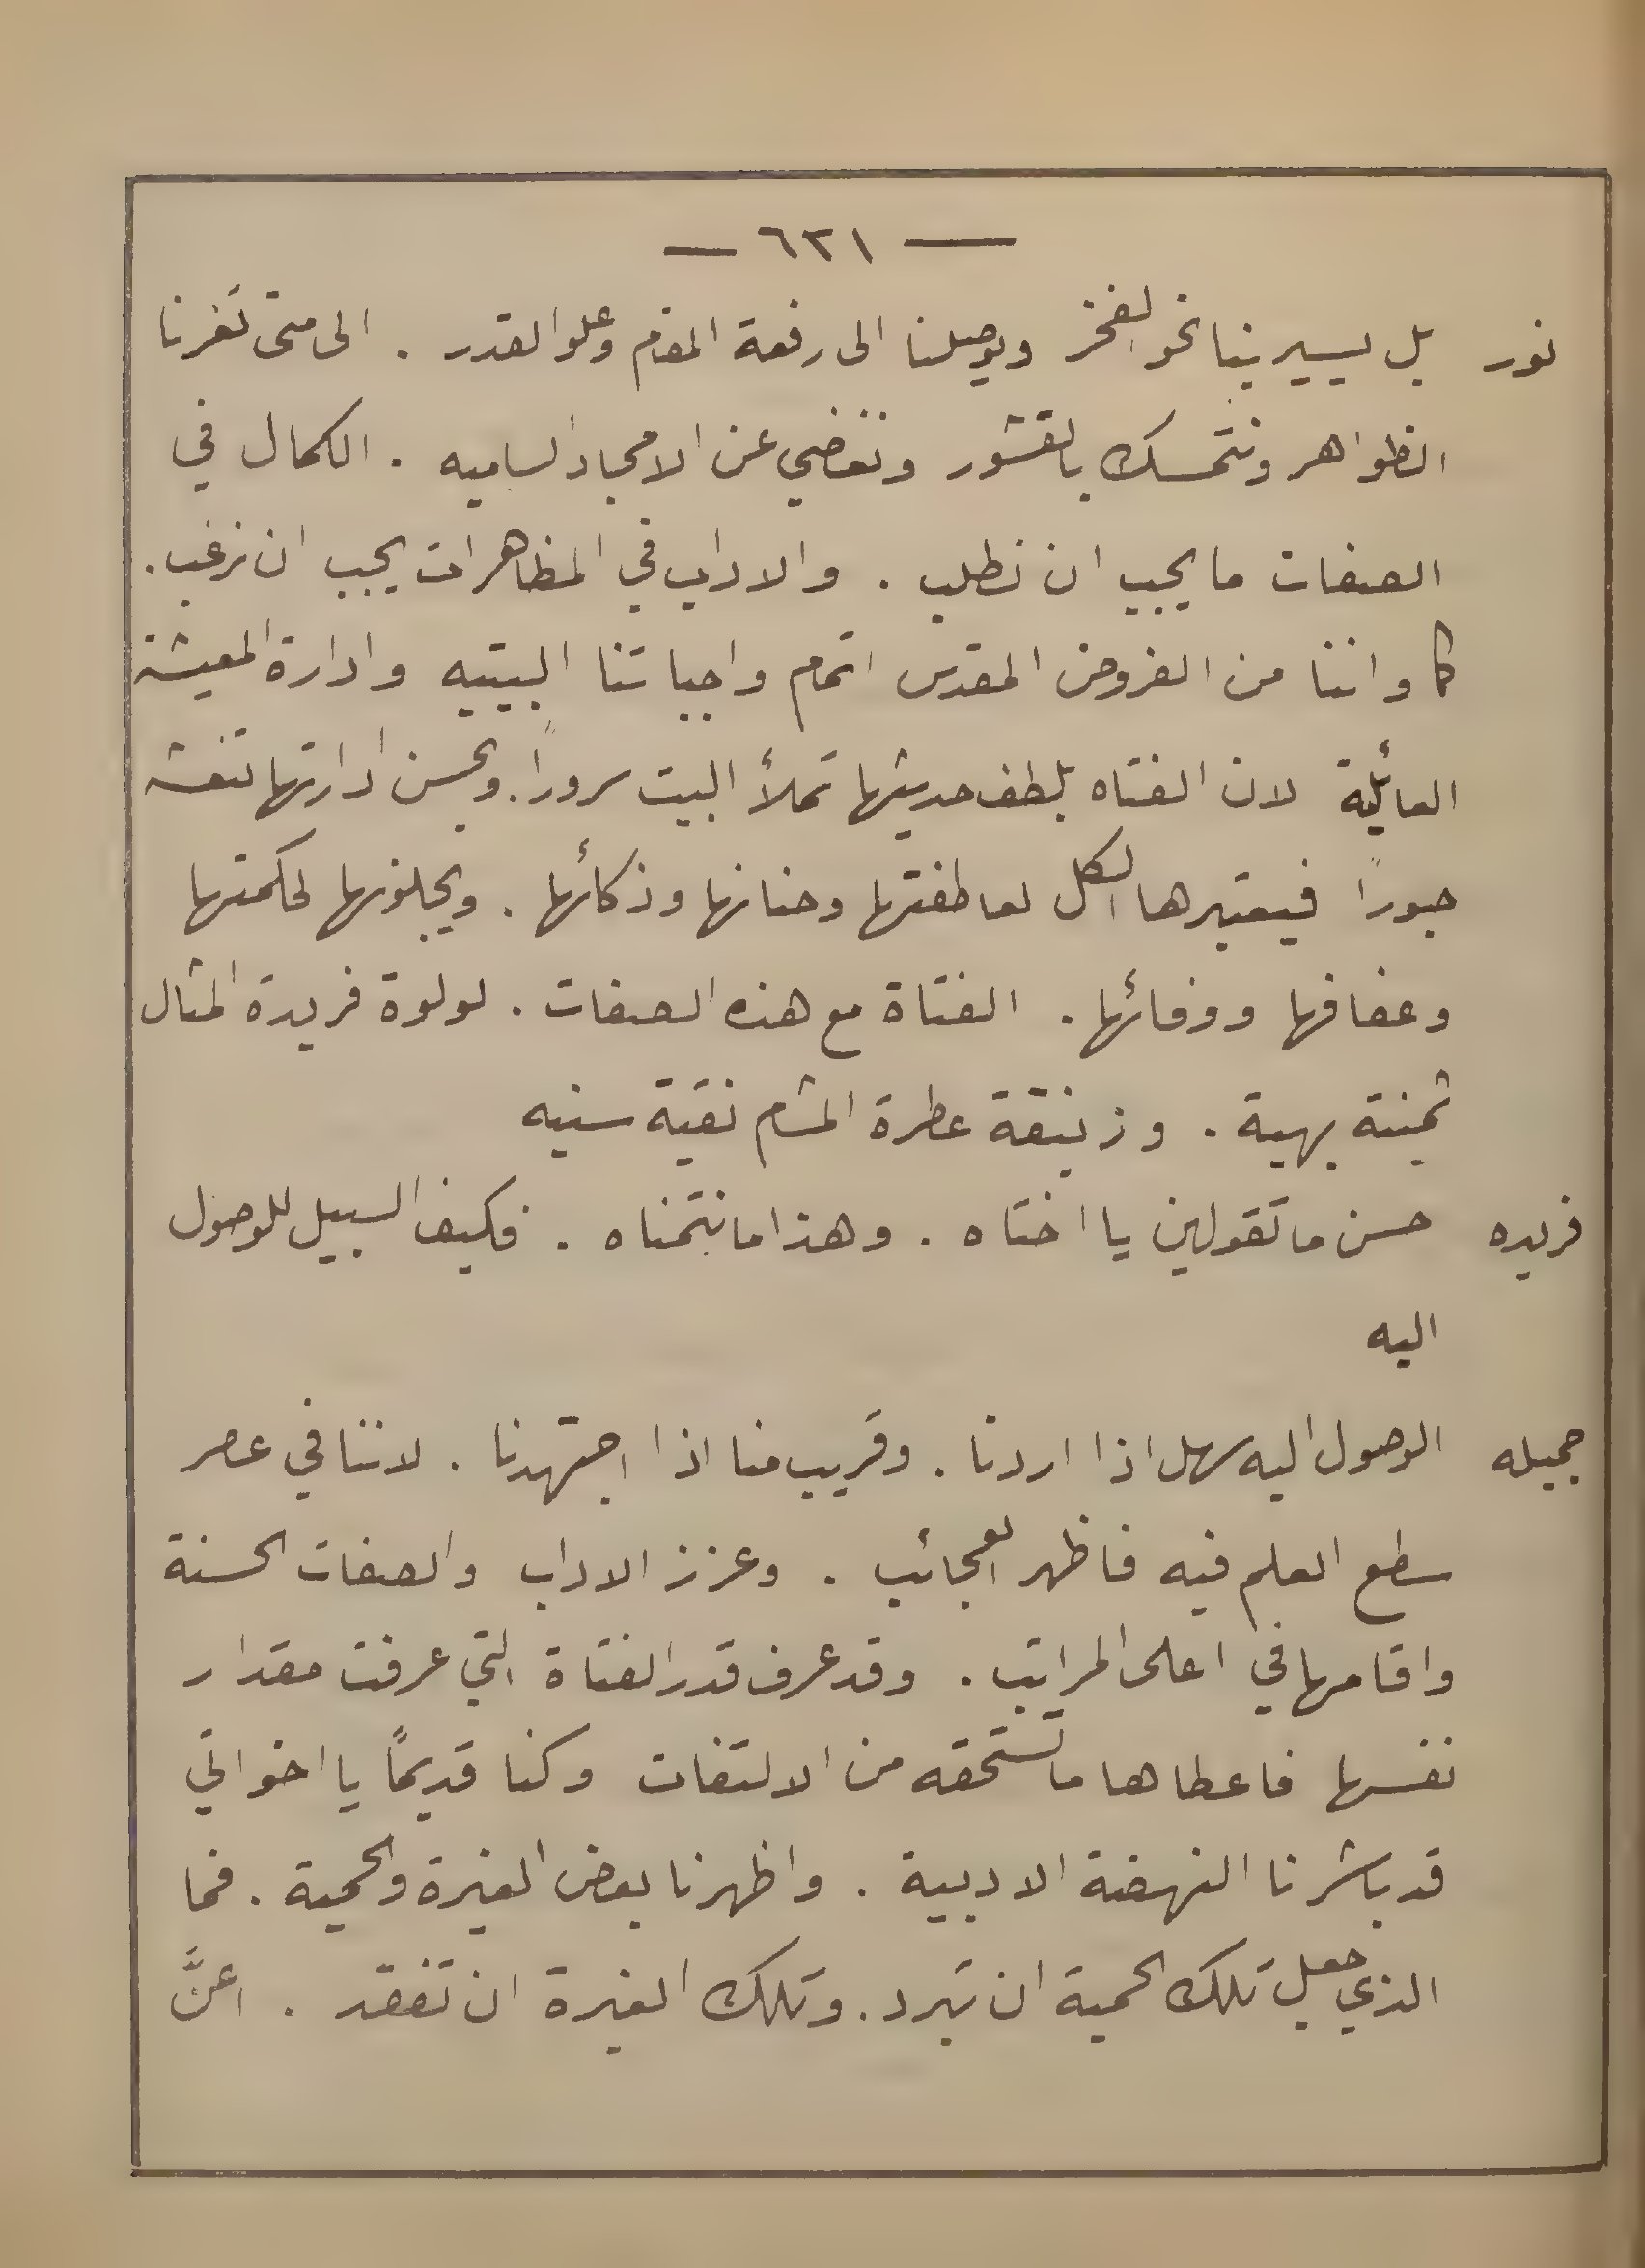 — ٦٢١ —
نور بل يسير بنا نحو الفخر ويوصلنا الى رفعة المقام وعلو القدر . الى متى تغرنا
الظواهر ونتمسك بالقشور ونغضي عن الامجاد الساميه . الكمال في
الصفات ما يجب ان نطلب . والاداب في المظاهرات يجب ان نرغب .
كما واننا من الفروض المقدس اتمام واجباتنا البيتيه وادارة المعيشة
العائلية لان الفتاه بلطف حديثها تملأ البيت سروراً . وبحسن ادارتها تنعشه
حبوراً فيعتبرها الكل لعاطفتها وحنانها وذكائها . ويجلونها لحكمتها
وعفافها ووفائها . الفتاة مع هذه الصفات . لولوة فريدة المثال
ثمينة بهية . وزنبقة عطرة المشام نقية سنيه
فريده حسن ما تقولين يا اختاه . وهذا ما نتمناه . فكيف السبيل للوصول
اليه
جميله الوصول اليه سهل اذا اردنا . وقريب منا اذا اجتهدنا . لاننا في عصر
سطع العلم فيه فاظهر العجائب . وعزز الاداب والصفات الحسنة
واقامها في اعلى المراتب . وقد عرف قدر الفتاة التي عرفت مقدار
نفسها فاعطاها ما تستحقه من الالتفات وكنا قديماً يا اخواتي
قد باشرنا النهضة الادبية . واظهرنا بعض الغيرة والحمية . فما
الذي جعل تلك الحمية ان تبرد . وتلك الغيرة ان تفقد . اعنَّ